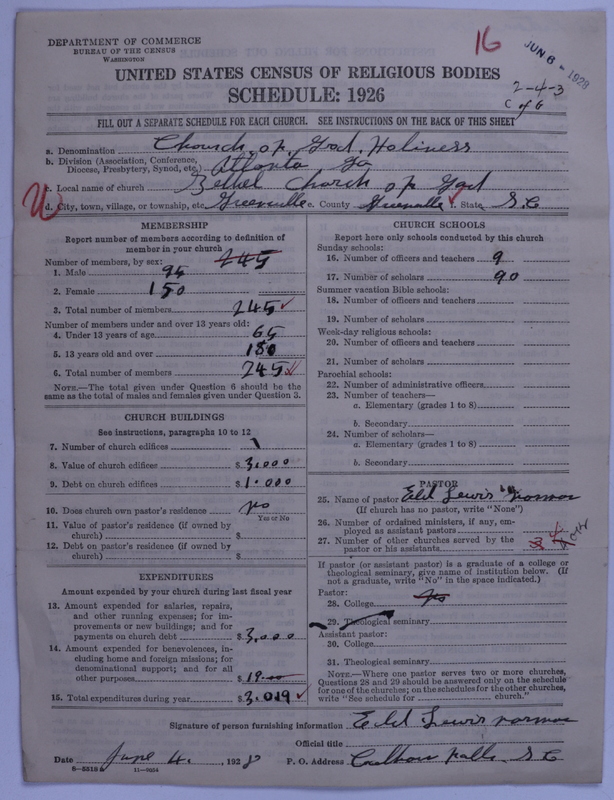 DEPARTMENT OF COMMERCE
BUREAU OF THE CENSUS
WASHINGTON
16
JUN 6 - 1928
UNITED STATES CENSUS OF RELIGIOUS BODIES
SCHEDULE: 1926
2-4-3
C of G
FILL OUT A SEPARATE SCHEDULE FOR EACH CHURCH. SEE INSTRUCTIONS ON THE BACK OF THIS SHEET
a. Denomination Church of God Holiness
b. Division (Association, Conference, Diocese, Presbytery, Synod, etc.) Atlanta Ga
c. Local name of church Bethel Church of God
d. City, town, village, or township, etc. Greenville e. County Greenville f. State S.C
MEMBERSHIP
Report number of members according to definition of
member in your church
Number of members, by sex: 245
1. Male 95
2. Female 150
3. Total number of members 245
Number of members under and over 13 years old:
4. Under 13 years of age 65
5. 13 years old and over 180
6. Total number of members 245
NOTE.—The total given under Question 6 should be
same as the total of males and females given under Question 3.
CHURCH BUILDINGS
See instructions, paragraphs 10 to 12
7. Number of church edifices 1
8. Value of church edifices $ 3,000
9. Debt on church edifices $ 1.000
10. Does church own pastor's residence no
Yes or No
11. Value of pastor's residence (if owned by
church) $
12. Debt on pastor's residence (if owned by
church) $
EXPENDITURES
Amount expended by your church during last fiscal year
13. Amount expended for salaries, repairs,
and other running expenses; for im-
provements or new buildings; and for
payments on church debt $ 3,000
14. Amount expended for benevolences, in-
cluding home and foreign missions; for
denominational support; and for all
other purposes $ 19.00
15. Total expenditures during year $ 3.019
CHURCH SCHOOLS
Report here only schools conducted by this church
Sunday schools:
16. Number of officers and teachers 9
17. Number of scholars 90
Summer vacation Bible schools:
18. Number of officers and teachers
19. Number of scholars
Week-day religious schools:
20. Number of officers and teachers
21. Number of scholars
Parochial schools:
22. Number of administrative officers
23. Number of teachers—
a. Elementary (grades 1 to 8)
b. Secondary
24. Number of scholars—
a. Elementary (grades 1 to 8)
b. Secondary
PASTOR
25. Name of pastor Eld Lewis
(If church has no pastor, write "None")
26. Number of ordained ministers, if any, em-
ployed as assistant pastors
27. Number of other churches served by the
pastor or his assistants 3 4
If pastor (or assistant pastor) is a graduate of a college or
theological seminary, give name of institution below. (If
not a graduate, write "No" in the space indicated.)
Pastor:
28. College no
29. Theological seminary
Assistant pastor:
30. College
31. Theological seminary
NOTE.—Where one pastor serves two or more churches,
Questions 28 and 29 should be answered only on the schedule
for one of the churches; on the schedules for the other churches,
write "See schedule for church."
Signature of person furnishing information Eld Lewis
Official title
Date June 4, 1928 P. O. Address Calhoun Falls S.C
8-5518a 11-9034